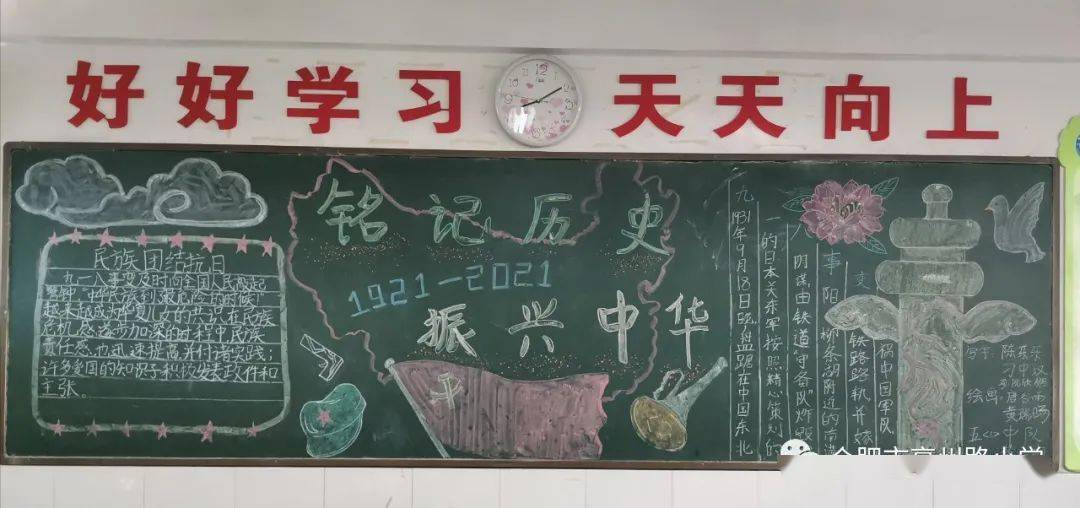 好好学习 天天向上
民族团结抗日
九一八事变及时向全国人民敲起
警钟,中华民族到“最危险的时候”
越来越成为中华儿女的共识,在民族
危机感逐步加深的过程中,民族
责任感也迅速提高并付诸实践;
许多爱国的知识分子积极发表政件和
主张。
铭记历史
1921-2021
振兴中华
九一
事
1931年9月18日晚,盘踞在中国东北
的日本关东军按照精心策划的
阴谋,由铁道“守备队”炸毁
阳柳条湖附近的南满
铁路路轨,并嫁
祸中国军队
绘画
合肥市亳州路小学